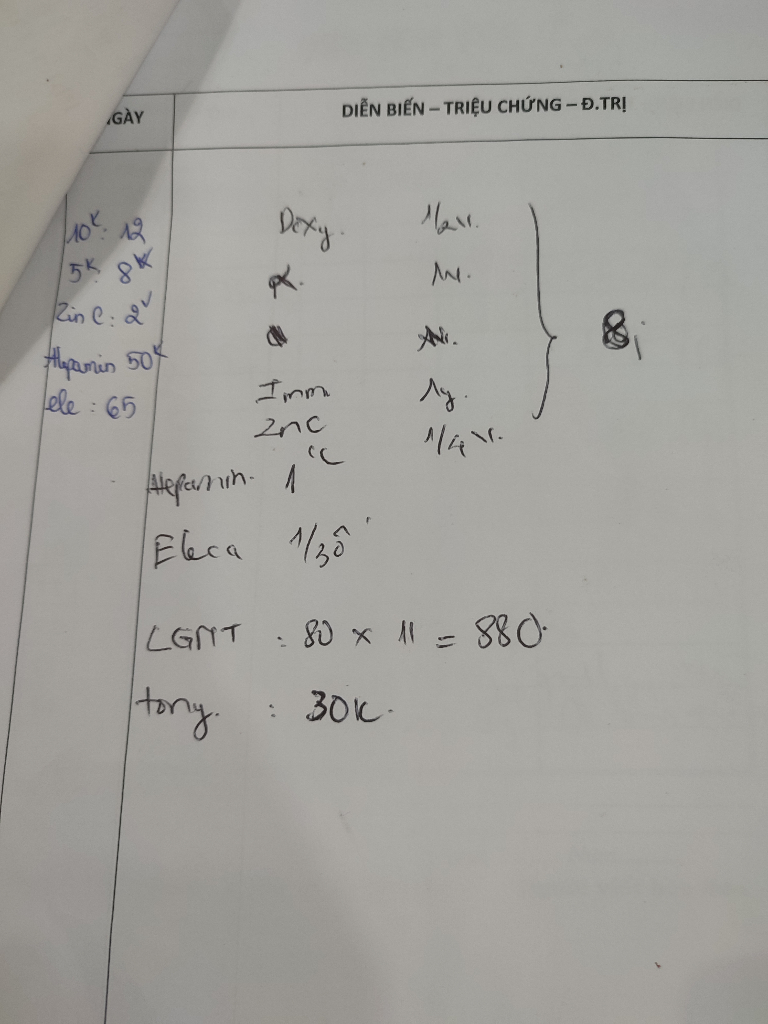 NGÀY DIỄN BIẾN – TRIỆU CHỨNG – Đ.TRỊ
10K: 12
5K: 8K
Zin C: 2v
Hepamin 50K
ele: 65
Doxy. 1/2v.
α. 1v.
Imm 1g.
ZnC 1/4v.
Hepamin. 1cc
Eleca 1/3ô
LGNT : 80 x 11 = 880.
tony. : 30K.